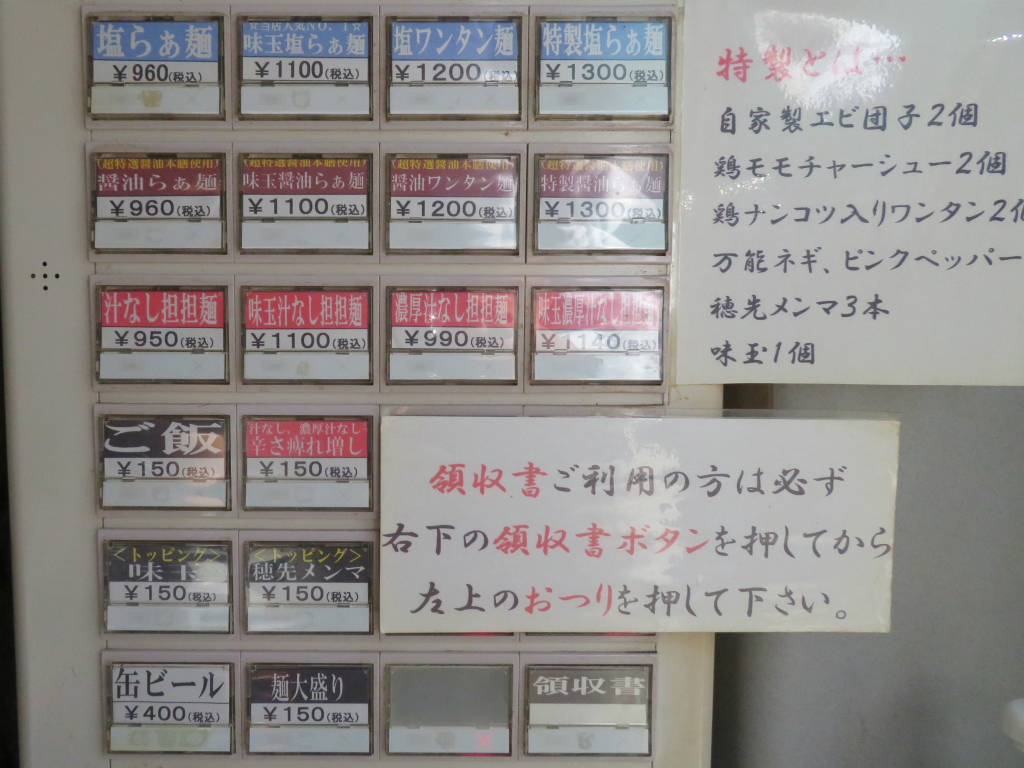 塩らぁ麺
¥960(税込)
☆当店人気NO.1☆
味玉塩らぁ麺
¥1100(税込)
塩ワンタン麺
¥1200(税込)
特製塩らぁ麺
¥1300(税込)
(超特選醤油本膳使用)
醤油らぁ麺
¥960(税込)
(超特選醤油本膳使用)
味玉醤油らぁ麺
¥1100(税込)
(超特選醤油本膳使用)
醤油ワンタン麺
¥1200(税込)
(超特選醤油本膳使用)
特製醤油らぁ麺
¥1300(税込)
汁なし担担麺
¥950(税込)
味玉汁なし担担麺
¥1100(税込)
濃厚汁なし担担麺
¥990(税込)
味玉濃厚汁なし担担麺
¥1140(税込)
ご飯
¥150(税込)
汁なし、濃厚汁なし
辛さ痺れ増し
¥150(税込)
<トッピング>
味玉
¥150(税込)
<トッピング>
穂先メンマ
¥150(税込)
缶ビール
¥400(税込)
麺大盛り
¥150(税込)
領収書
特製とは…
自家製エビ団子2個
鶏モモチャーシュー2個
鶏ナンコツ入りワンタン2個
万能ネギ、ピンクペッパー
穂先メンマ3本
味玉1個
領収書ご利用の方は必ず
右下の領収書ボタンを押してから
左上のおつりを押して下さい。